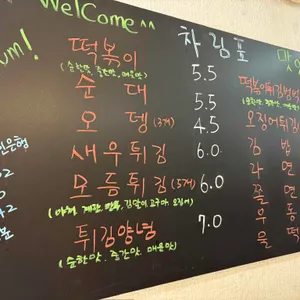 Welcome ^^
um!
차림표
떡볶이 5.5
(순한맛, 중간맛, 매운맛)
순대 5.5
오뎅 (3개) 4.5
새우튀김 6.0
모듬튀김 (5개) 6.0
(야채, 계란, 만두, 김말이, 고구마, 오징어)
튀김양념 7.0
(순한맛, 중간맛, 매운맛)
떡볶이튀김범벅
오징어튀김
김밥
라면
쫄면
우동